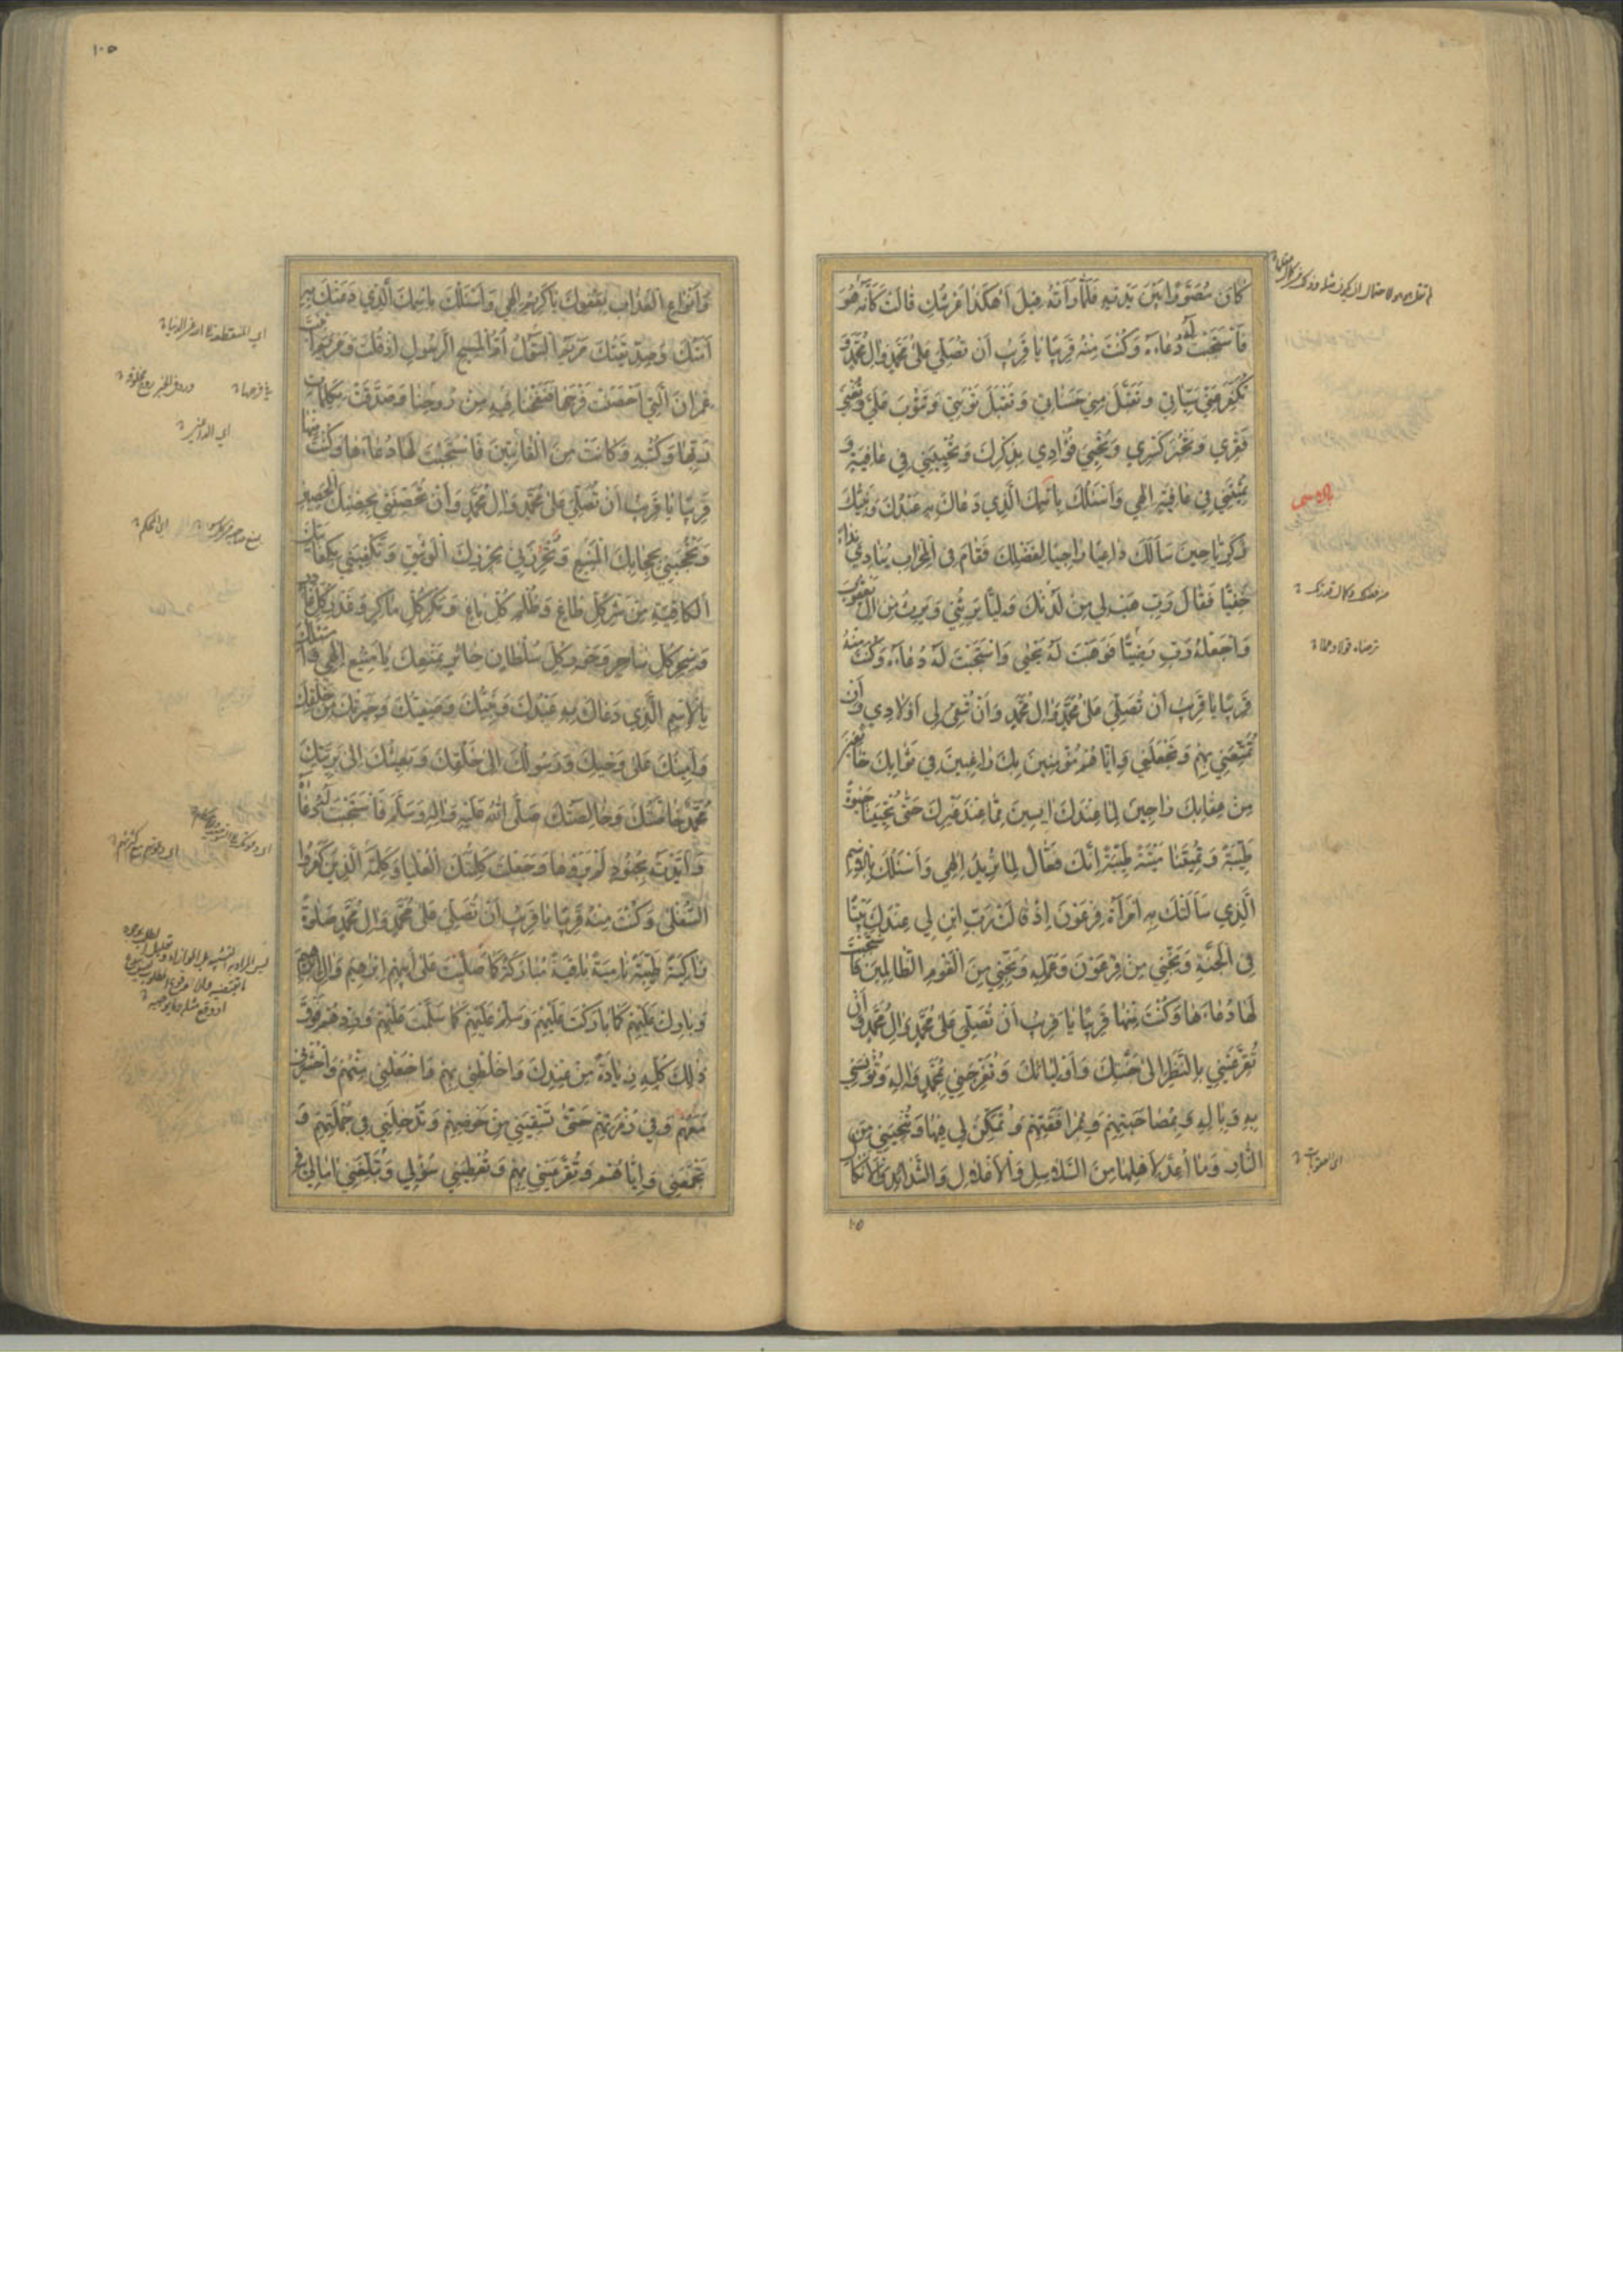 كان مصورا بين يديه فلما رأته قيل أهكذا عرشك قالت كأنه هو
فاستجبت له دعاءه وكنت منه قريبا يا قريب أن تصلي على محمد وال محمد و
تكفر عني سيئاتي وتقبل مني حسناتي وتقبل توبتي وتتوب علي وتغني
فقري وتجبر كسري وتحيي فؤادي بذكرك وتحييني في عافية و
تميتني في عافية الهي وأسئلك باسمك الذي دعاك به عبدك ونبيك
زكريا حين سألك داعيا راجيا لفضلك فقام في المحراب ينادي نداء
خفيا فقال رب هب لي من لدنك وليا يرثني ويرث من ال يعقوب
واجعله رب رضيا فوهبت له يحيى واستجبت له دعاءه وكنت منه
قريبا يا قريب أن تصلي على محمد وال محمد وأن تبقي لي أولادي وأن
تمتعني بهم وتجعلني وإياهم مؤمنين بك راغبين في ثوابك خائفين
من عقابك راجين لما عندك ايسين مما عند غيرك حتى تحيينا حيوة
طيبة وتميتنا ميتة طيبة إنك فعال لما تريد الهي وأسئلك بالاسم
الذي سألتك به امرأة فرعون إذ قالت رب ابن لي عندك بيتا
في الجنة ونجني من فرعون وعمله ونجني من القوم الظالمين فاستجبت
لها دعاءها وكنت منها قريبا يا قريب أن تصلي على محمد وال محمد وأن
تقر عيني بالنظر الى جنتك وأوليائك وتفرحني بمحمد واله وتؤنسني
به وباله وبمصاحبتهم ومرافقتهم وتمكن لي فيها وتنجيني من
النار وما أعد لأهلها من السلاسل والأغلال والشدائد والأنكال
١٠٥
وأنواع العذاب بعفوك يا كريم الهي وأسئلك باسمك الذي دعتك به
أمتك وصديقتك مريم البتول أم المسيح الرسول اذ قلت ومريم ابنت
عمران التي أحصنت فرجها فنفخنا فيه من روحنا وصدقت بكلمات
ربها وكتبه وكانت من القانتين فاستجبت لها دعاءها وكنت منها
قريبا يا قريب أن تصلي على محمد وال محمد وأن تحصنني بحصنك الحصين
وتحجبني بحجابك المنيع وتحرزني بحرزك الوثيق وتكفيني بكفايتك
الكافية من شر كل طاغ وظلم كل باغ ومكر كل ماكر وغدر كل غادر
وسحر كل ساحر وجور كل سلطان جائر بمنعك يا منيع الهي وأسئلك
بالاسم الذي دعاك به عبدك ونبيك وصفيك وخيرتك من خلقك
وأمينك على وحيك ورسولك الى خلقك وبعيثك الى بريتك
محمد خاصتك وخالصتك صلى الله عليه واله وسلم فاستجبت له دعاءه
وأيدته بجنود لم يروها وجعلت كلمتك العليا وكلمة الذين كفروا
السفلى وكنت منه قريبا يا قريب أن تصلي على محمد وال محمد صلوة
زاكية طيبة نامية باقية مباركة كما صليت على أبيهم إبرهيم وال إبرهيم
وبارك عليهم كما باركت عليهم وسلم عليهم كما سلمت عليهم وزدهم فوق
ذلك كله زيادة من عندك واخلطني بهم واجعلني منهم واحشرني
معهم وفي زمرتهم حتى تسقيني من حوضهم وتدخلني في جملتهم و
تجمعني وإياهم وتقر عيني بهم وتعطيني سؤلي وتبلغني امالي في